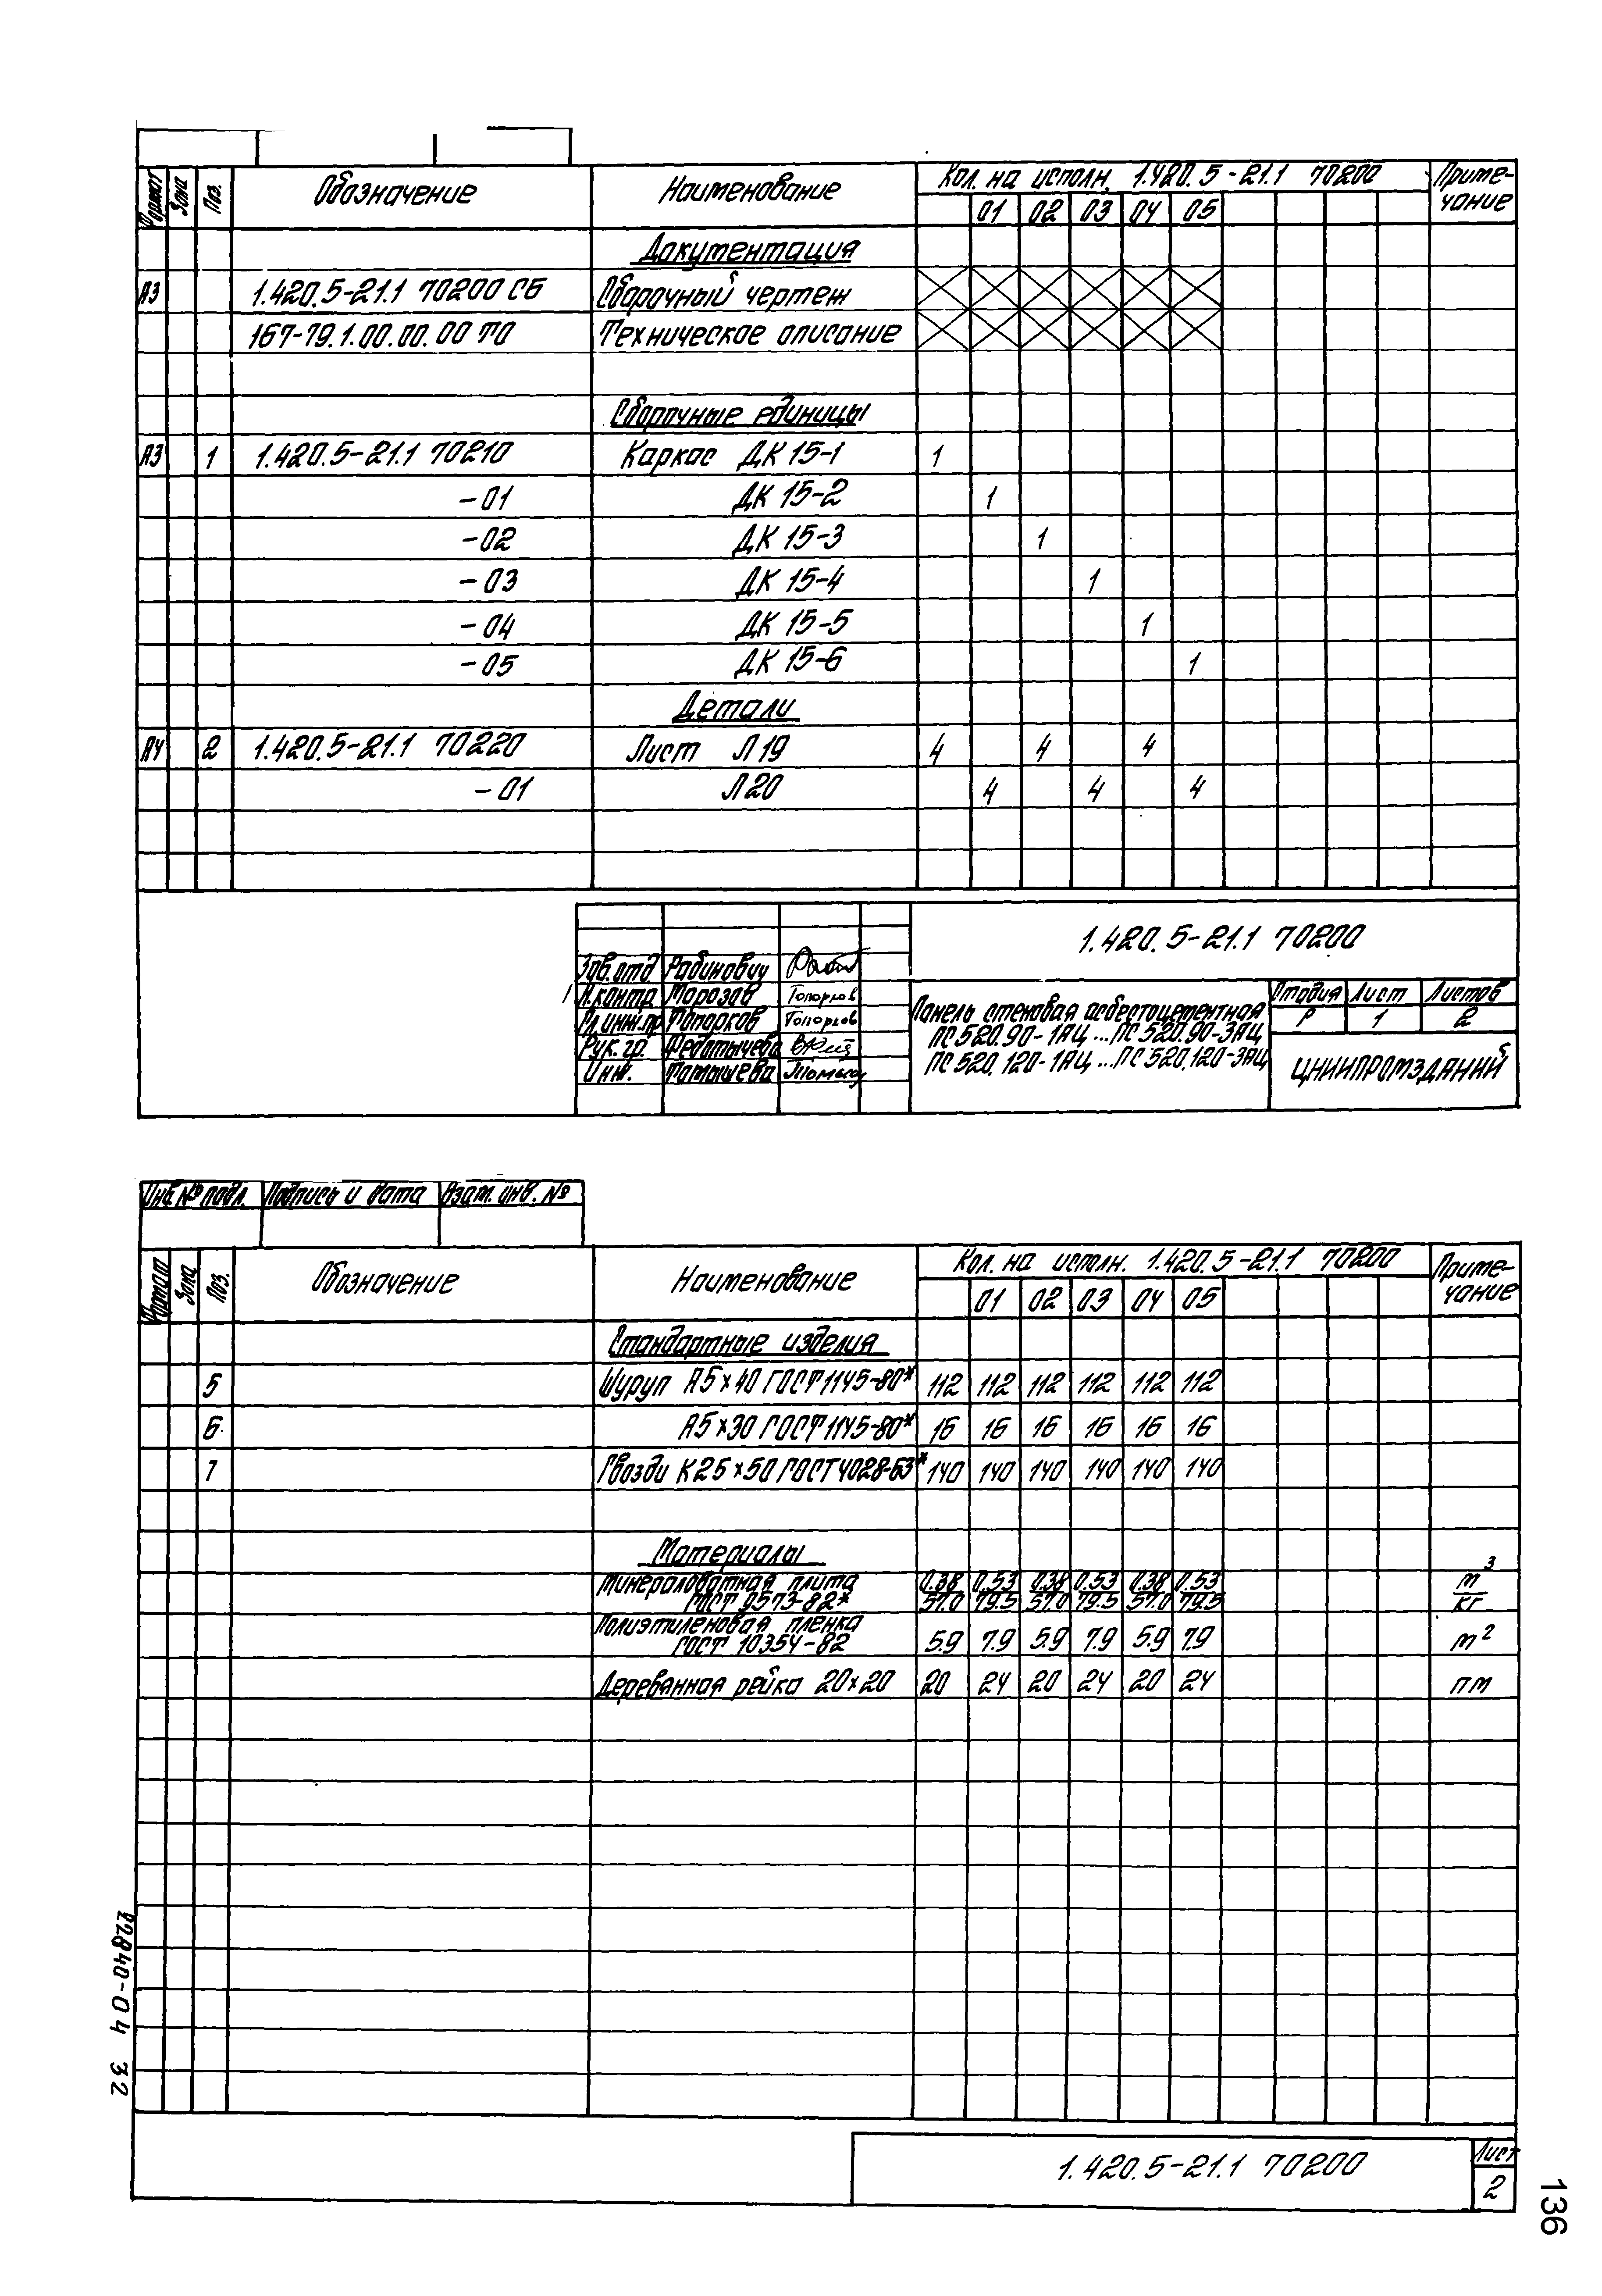 Формат Зона Поз. Обозначение Наименование Кол. на исполн. 1.420.5-21.1 70200 Приме-чание
01 02 03 04 05
Документация
А3 1.420.5-21.1 70200 СБ Сборочный чертеж
167-79.1.00.00.00 ТО Техническое описание
Сборочные единицы
А3 1 1.420.5-21.1 70210 Каркас ДК 15-1 1
-01 ДК 15-2 1
-02 ДК 15-3 1
-03 ДК 15-4 1
-04 ДК 15-5 1
-05 ДК 15-6 1
Детали
А4 2 1.420.5-21.1 70220 Лист Л19 4 4 4
-01 Л20 4 4 4
1.420.5-21.1 70200
Зав.отд. Рабинович
Н.контр Морозов Топорков
Гл.инж.пр Топорков Топорков
Рук.гр. Федотычева
Инж. Томышева
Панель стеновая асбестоцементная
ПС520.90-1АЦ...ПС520.90-3АЦ
ПС520.120-1АЦ...ПС520.120-3АЦ
Стадия Лист Листов
Р 1 2
ЦНИИПРОМЗДАНИЙ
Инв.№ подл. Подпись и дата Взам. инв. №
Формат Зона Поз. Обозначение Наименование Кол. на исполн. 1.420.5-21.1 70200 Приме-чание
01 02 03 04 05
Стандартные изделия
5 Шуруп А5×40 ГОСТ 1145-80* 112 112 112 112 112 112
6 А5×30 ГОСТ 1145-80* 16 16 16 16 16 16
7 Гвозди К25×50 ГОСТ 4028-63* 140 140 140 140 140 140
Материалы
Минераловатная плита 0.38 0.53 0.38 0.53 0.38 0.53 м3
ГОСТ 9573-82* 57.0 79.5 57.0 79.5 57.0 79.5 кг
Полиэтиленовая пленка
ГОСТ 10354-82 5.9 7.9 5.9 7.9 5.9 7.9 м2
Деревянная рейка 20×20 20 24 20 24 20 24 пм
22840-04 32
1.420.5-21.1 70200
Лист
2
136